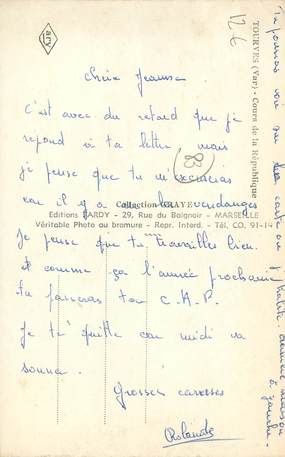 ary
12 €
Chère Jeanine
C'est avec du retard que je
repond vi ta lettre mais
je pense que tu m'excuseras
car il y a les vendanges
83
Collection GRAYE
Editions BARDY - 29, Rue du Baignoir - MARSEILLE
Véritable Photo au bromure - Repr. Interd. - Tél. CO. 91-14
Je pense que tu travailles bien.
et comme ça l'année prochaine
tu passeras ton C.A.P.
Je te quitte car midi va
sonner.
Grosses caresses
Rolande
TOURVES (Var) - Cours de la République
Tu pourras voir sur la carte ou j'habite. dernière maison
à gauche.